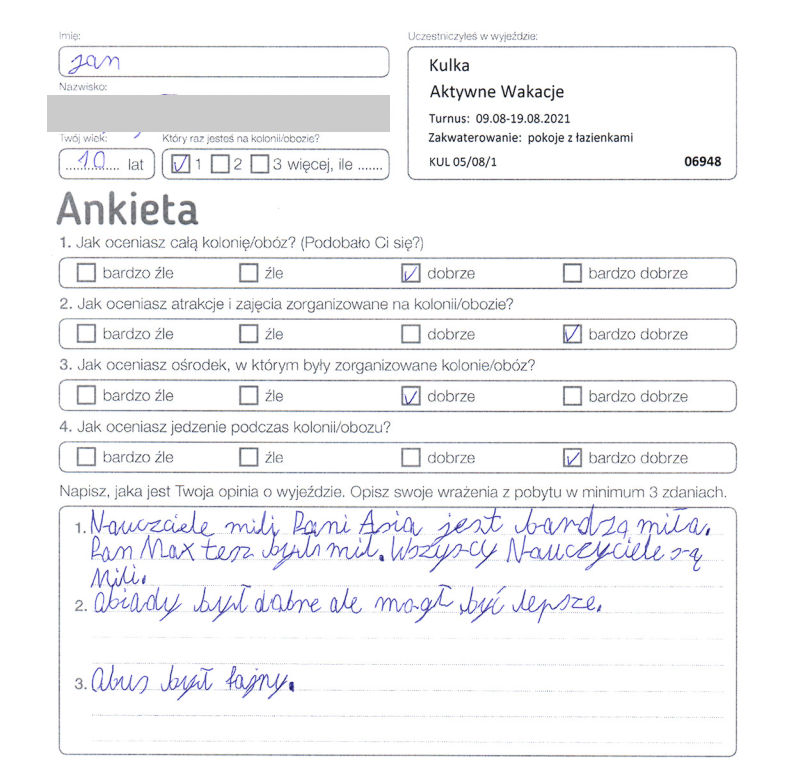 Imię:
Jan
Nazwisko:
Twój wiek:
10 lat
Który raz jesteś na kolonii/obozie?
1 2 3 więcej, ile .......
Uczestniczyłeś w wyjeździe:
Kulka
Aktywne Wakacje
Turnus: 09.08-19.08.2021
Zakwaterowanie: pokoje z łazienkami
KUL 05/08/1 06948
Ankieta
1. Jak oceniasz całą kolonię/obóz? (Podobało Ci się?)
bardzo źle źle dobrze bardzo dobrze
2. Jak oceniasz atrakcje i zajęcia zorganizowane na kolonii/obozie?
bardzo źle źle dobrze bardzo dobrze
3. Jak oceniasz ośrodek, w którym były zorganizowane kolonie/obóz?
bardzo źle źle dobrze bardzo dobrze
4. Jak oceniasz jedzenie podczas kolonii/obozu?
bardzo źle źle dobrze bardzo dobrze
Napisz, jaka jest Twoja opinia o wyjeździe. Opisz swoje wrażenia z pobytu w minimum 3 zdaniach.
1. Nauczciele mili Pani Asia jest bardzą miła.
Pan Max tesz był mił. Wszyscy Nauczyciele są
mili.
2. abiady był dabre ale mogł być lepsze.
3. Abus był fajny.